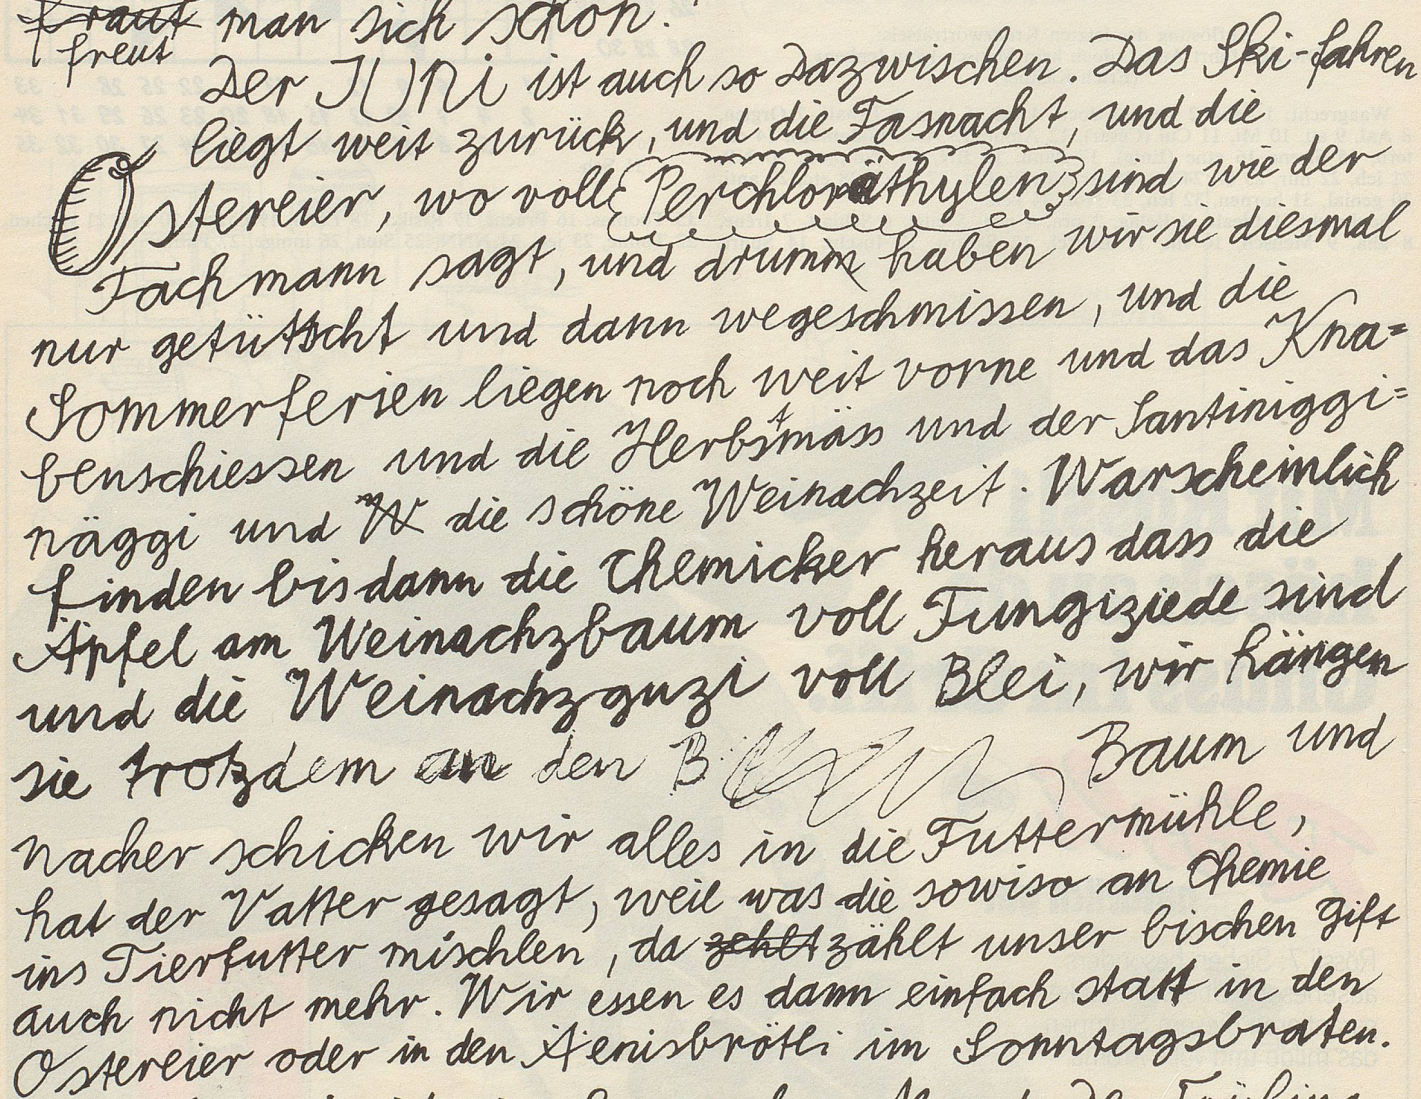 fraut man sich schon.
freut
Der JUNi ist auch so dazwischen. Das Ski-fahren
liegt weit zurück, und die Fasnacht, und die
Ostereier, wo voll Perchloräthylen sind wie der
Fachmann sagt, und drumm haben wir sie diesmal
nur getütscht und dann wegeschmissen, und die
Sommerferien liegen noch weit vorne und das Kna=
benschiessen und die Herbstmäss und der Santiniggi=
näggi und W die schöne Weinachzeit. Warscheinlich
finden bis dann die Chemicker heraus dass die
Äpfel am Weinachzbaum voll Fungiziede sind
und die Weinachzguzi voll Blei, wir hängen
sie trotzdem an den B Baum und
nacher schicken wir alles in die Futtermühle,
hat der Vatter gesagt, weil was die sowiso an Chemie
ins Tierfutter mischlen, da zehlt zählt unser bischen Gift
auch nicht mehr. Wir essen es dann einfach statt in den
Ostereier oder in den Aenisbrötli im Sonntagsbraten.